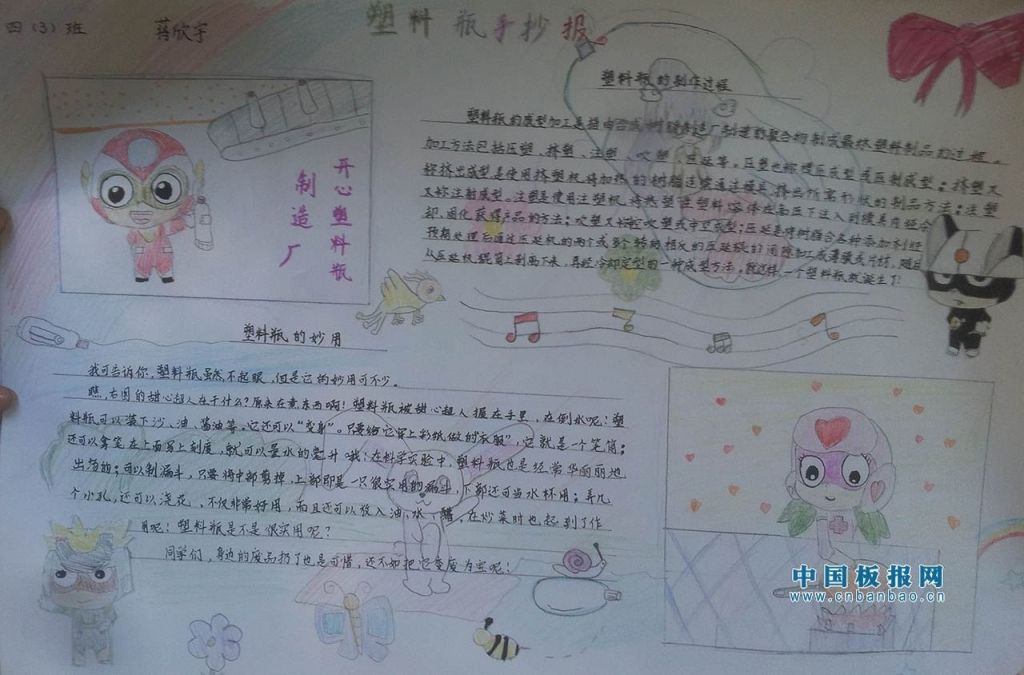 四（3）班
蒋欣宇
塑料瓶手抄报
塑料瓶的制作过程
塑料瓶的成型加工是指由合成树脂制造厂制造的聚合物制成最终塑料制品的过程。
加工方法包括压塑、挤塑、注塑、吹塑、压延等。压塑也称模压成型或压制成型；挤塑又
称挤出成型是使用挤塑机将加热的树脂连续通过模具，挤出所需形状的制品方法；注塑
又称注射成型。注塑是使用注塑机将热塑性塑料熔体在高压下注入到模具内经冷
却、固化获得产品的方法；吹塑又称中空吹塑或中空成型；压延是将树脂合各种添加剂经
预期处理后通过压延机的两个或多个转动相反的压延辊的间隙加工成薄膜或片材，随后
从压延机辊筒上剥离下来，再经冷却定型的一种成型方法，就这样，一个塑料瓶就诞生了！
开心塑料瓶
制造厂
塑料瓶的妙用
我可告诉你，塑料瓶虽然不起眼，但是它的妙用可不少。
瞧，右图的甜心超人在干什么？原来在煮东西啊！塑料瓶被甜心超人握在手里，在倒水呢！塑
料瓶可以装下沙、油、酱油等。它还可以“变身”。只要给它穿上彩纸做的“衣服”，它就是一个笔筒；
还可以拿笔在上面写上刻度，就可以量水的毫升哦！在科学实验中，塑料瓶也是经常华丽丽地
出场的；可以制漏斗，只要将中部剪掉，上部即是一只很实用的漏斗，下部还可当水杯用；弄几
个小孔，还可以浇花，不仅非常好用，而且还可以放入油、水、醋，在炒菜时也起到了作
用呢！塑料瓶是不是很实用呢？
同学们，身边的废品扔了也是可惜，还不如把它变废为宝呢！
中国板报网
www.cnbanbao.cn